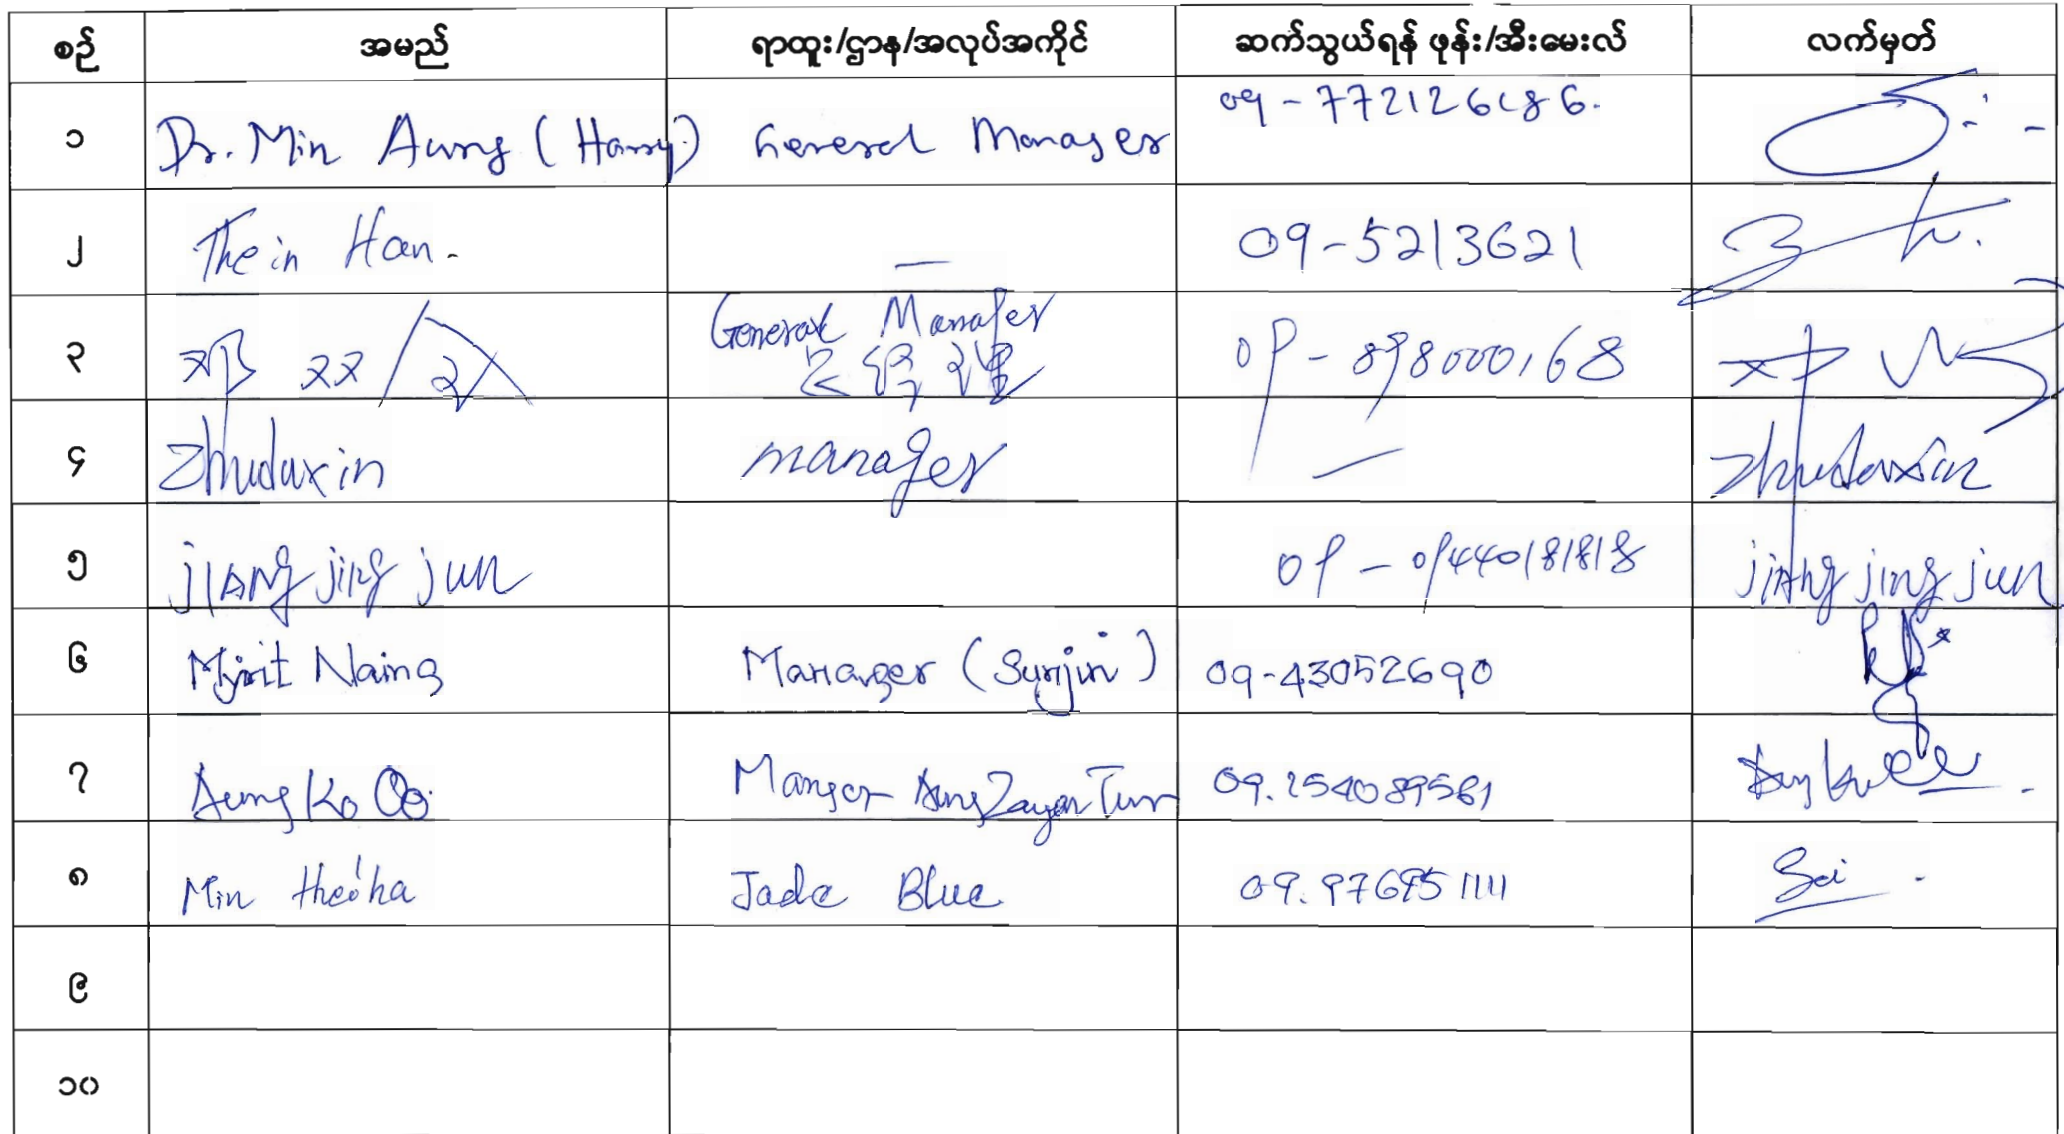 စဉ် အမည် ရာထူး/ဌာန/အလုပ်အကိုင် ဆက်သွယ်ရန် ဖုန်း/အီးမေးလ် လက်မှတ်
၁ Dr. Min Aung (Harry) General Manager 09-772126686.
၂ Thein Han. — 09-5213621
၃ General Manager 09-898000168
总经理
၄ Zhuduxin manager — Zhuduxin
၅ jIANg jing jun 09-09440181818 jIANg jing jun
၆ Myint Naing Manager (Sunjin) 09-43052690
၇ Aung Ko Oo. Manger Aung Zayar Tun 09.254089561
၈ Min Jade Blue 09.976951111
၉
၁၀